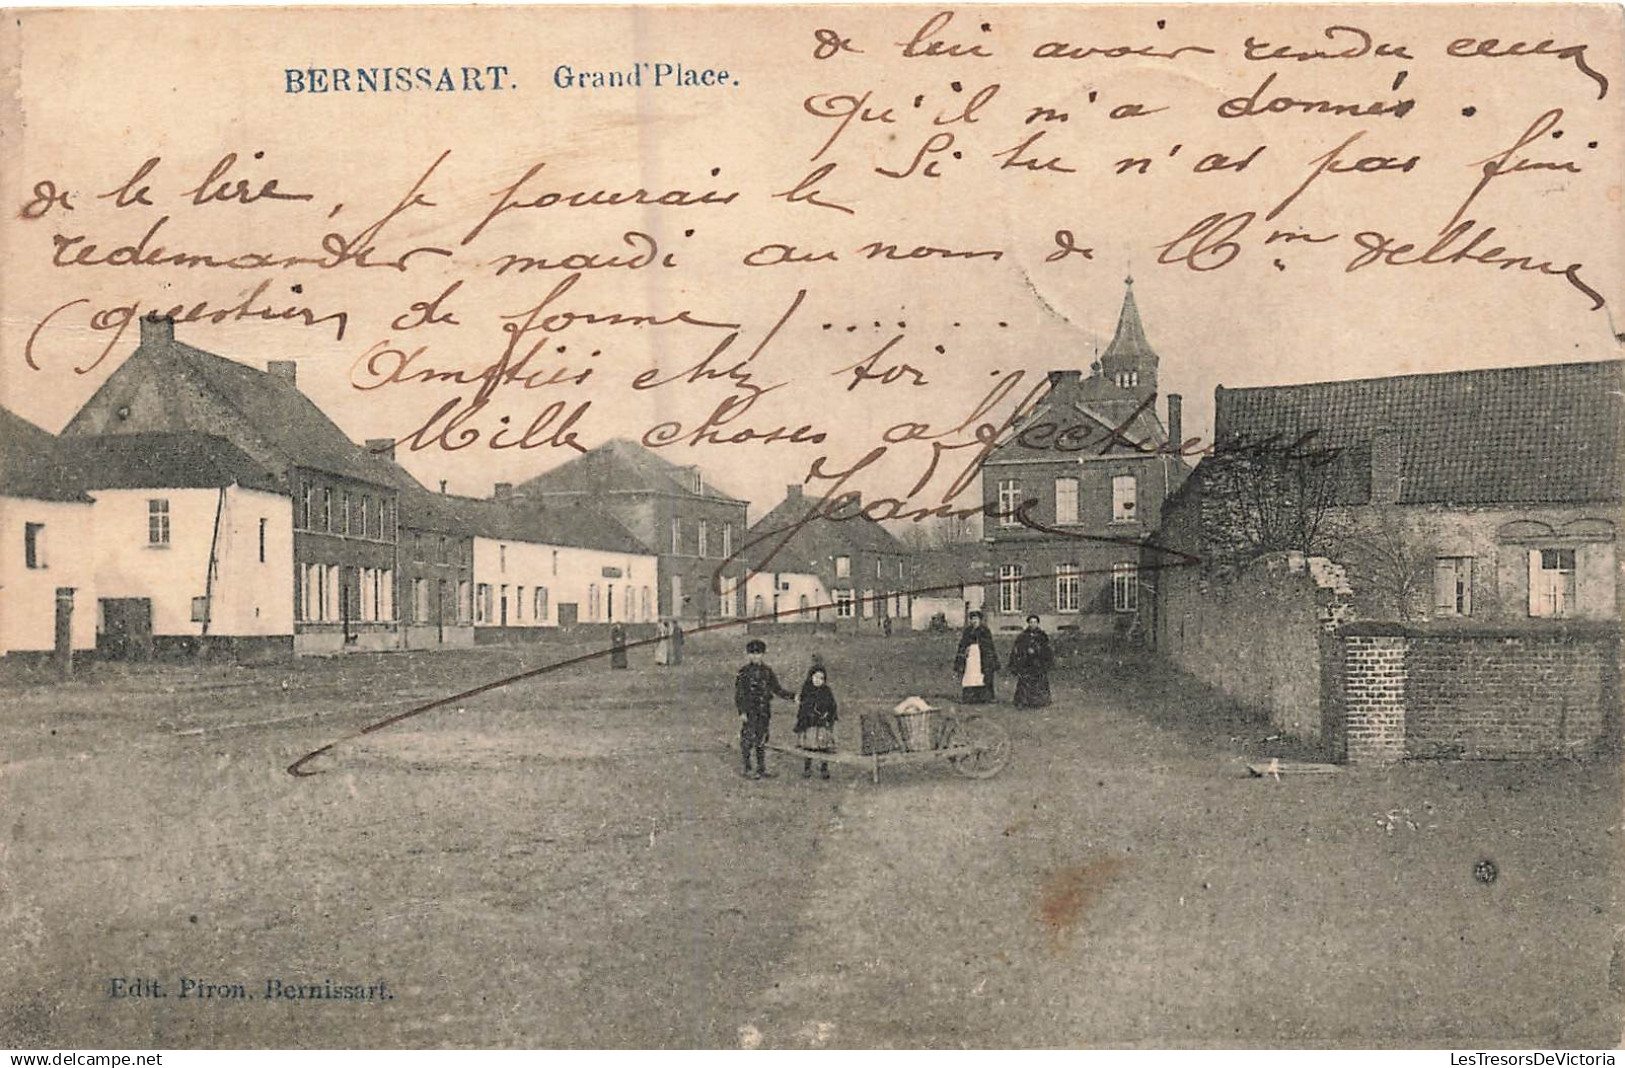 BERNISSART. Grand'Place.
de lui avoir rendu ceux
qu'il m'a donnés.
Si tu n'as pas fini
de le lire, je pourrais le
redemander mardi au nom de Mm
(question de forme) ......
Amitiés chez toi.
Mille choses affectueuses
Jeanne
Edit. Piron, Bernissart.
LesTresorsDeVictoria